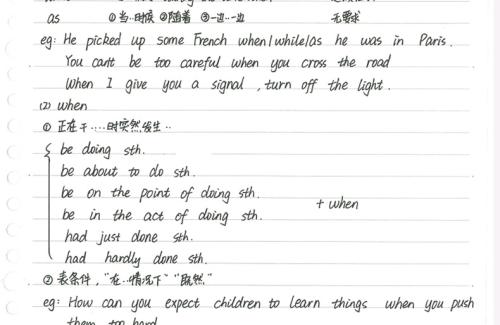 as ①当··时候 ②随着 ③一边··一边 无要求
eg: He picked up some French when/while/as he was in Paris.
You can't be too careful when you cross the road
When I give you a signal, turn off the light.
(2) when
① 正在干····时突然发生··
be doing sth.
be about to do sth.
be on the point of doing sth.
be in the act of doing sth.
+ when
had just done sth.
had hardly done sth.
② 表条件，"在··情况下" "既然"
eg: How can you expect children to learn things when you push
them too hard